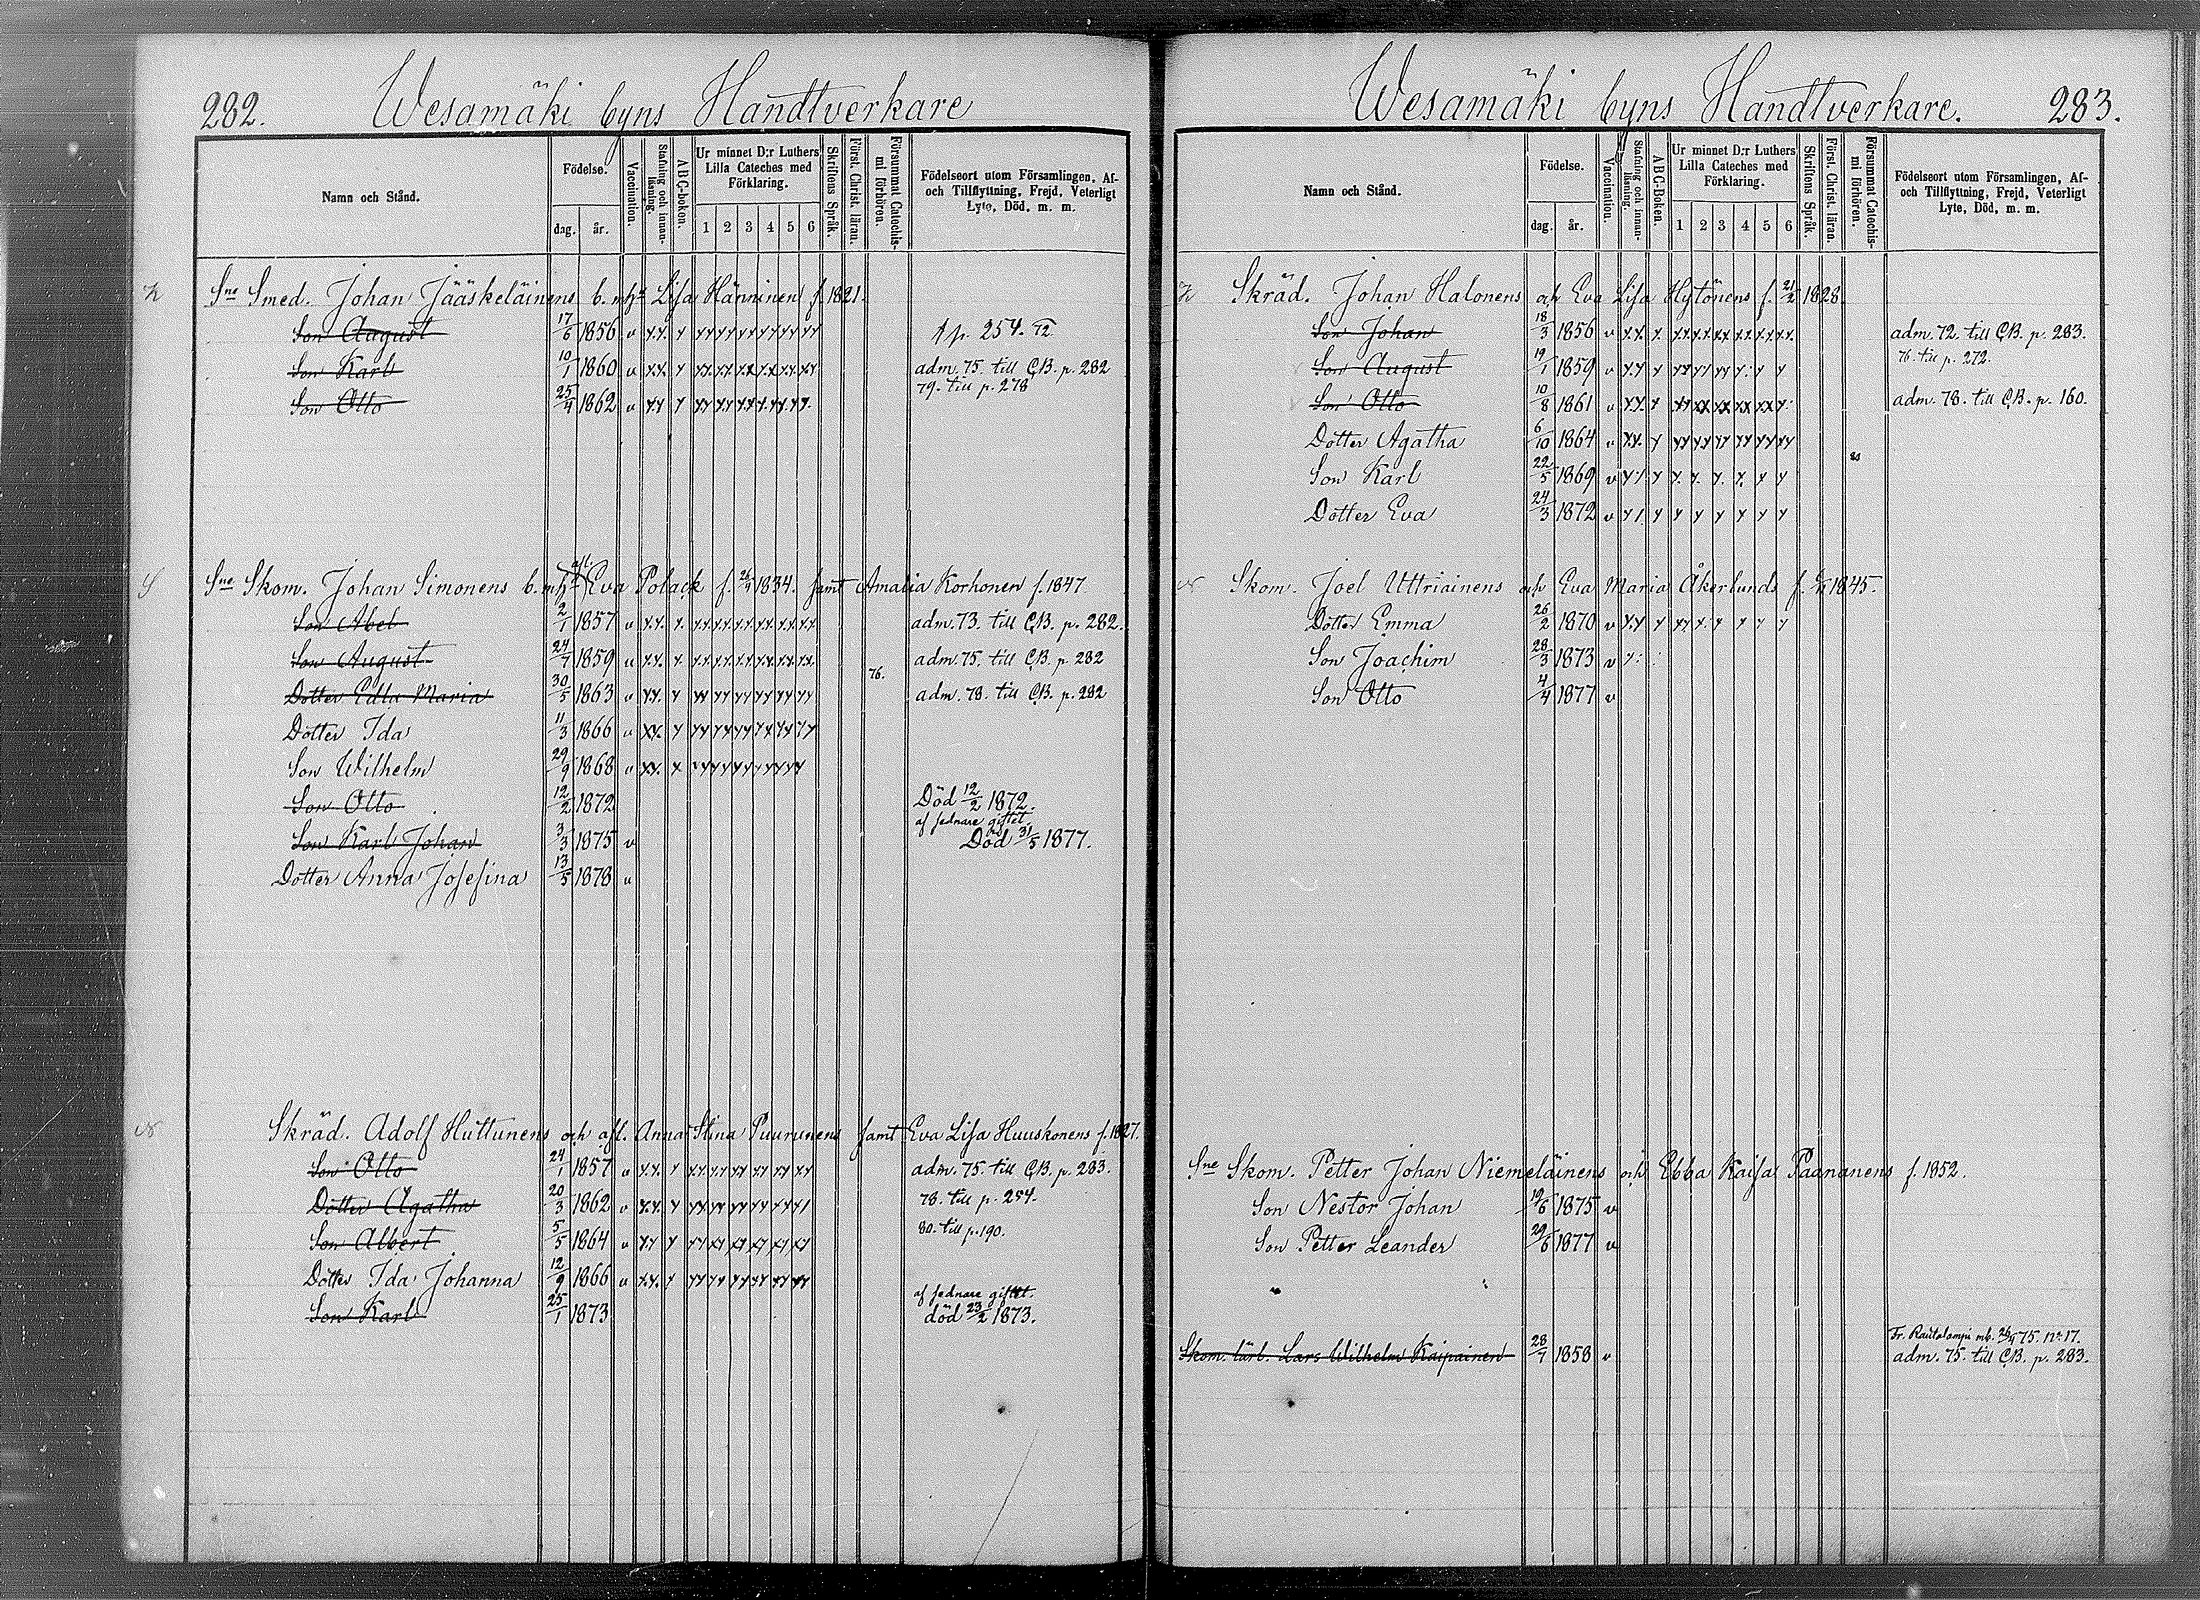 282. Wesamäki byns Handtverkare
Namn och Stånd.
Födelse.
dag. år.
Vaccination.
Stafning och innan-läsning.
ABC-boken.
Ur minnet D:r Luthers Lilla Cateches med Förklaring.
1 2 3 4 5 6
Skriftens Språk.
Först. Christ. läran.
Försummat Catechis-mi förhören.
Födelseort utom Församlingen, Af- och Tillflyttning, Frejd, Veterligt Lyte, Död, m. m.
Sne Smed. Johan Jääskeläinens b. m. h. Lisa Hänninen f. 1821.
Son August 17/6 1856 v p. 254. 72
Son Karl 10/1 1860 v adm. 75. till C.B. p. 282
79. till p. 278
Son Otto 25/4 1862 v
Sne Skom. Johan Simonens b. m. h. afl. Eva Polack f. 1834. samt Amalia Korhonen f. 1847
Son Abel 2/1 1857 v adm. 73. till C.B. p. 282.
Son August 24/7 1859 v adm. 75. till C.B. p. 282
76.
Dotter Edla Maria 30/5 1863 v adm. 78. till C.B. p. 282
Dotter Ida 11/3 1866 v
Son Wilhelm 29/9 1868 v
Son Otto 12/2 1872 Död 12/2 1872.
af sednare giftet.
Son Karl Johan 3/3 1875 v Död 31/5 1877.
Dotter Anna Josefina 13/5 1878 v
Skräd. Adolf Huttunens och afl. Anna Stina Puurunens samt Eva Lisa Huuskonens f. 1827.
Son Otto 24/1 1857 v adm. 75. till C.B. p. 283.
Dotter Agatha 20/3 1862 v 78. till p. 254.
Son Albert 5/5 1864 v 80. till p. 190.
Dotter Ida Johanna 12/9 1866 v
af sednare giftet.
Son Karl 25/1 1873 död 23/2 1873.
Wesamäki byns Handtverkare. 283.
Namn och Stånd.
Födelse.
dag. år.
Vaccination.
Stafning och innan-läsning.
ABC-Boken.
Ur minnet D:r Luthers Lilla Cateches med Förklaring.
1 2 3 4 5 6
Skriftens Språk.
Först. Christ. läran.
Försummat Catechis-mi förhören.
Födelseort utom Församlingen, Af- och Tillflyttning, Frejd, Veterligt Lyte, Död, m. m.
Skräd. Johan Halonens och Eva Lisa Hytönens f. 21/2 1828.
Son Johan 18/3 1856 v adm. 72. till C.B. p. 283.
Son August 19/1 1859 v 76. till p. 272.
Son Otto 10/8 1861 v adm. 78. till C.B. p. 160.
Dotter Agatha 6/10 1864 v
Son Karl 22/5 1869 v
Dotter Eva 24/3 1872 v
Skom. Joel Uttriainens och Eva Maria Åkerlunds f. 1845.
Dotter Emma 26/2 1870 v
Son Joachim 28/3 1873 v
Son Otto 4/4 1877 v
Sne Skom. Petter Johan Niemeläinens och Ebba Kaisa Paananens f. 1852.
Son Nestor Johan 19/6 1875 v
Son Petter Leander 29/6 1877 v
Fr. Rautalampi mb. 75. No. 17.
Skom. lärl. Lars Wilhelm Kaipainen 28/7 1858 v adm. 75. till C.B. p. 283.